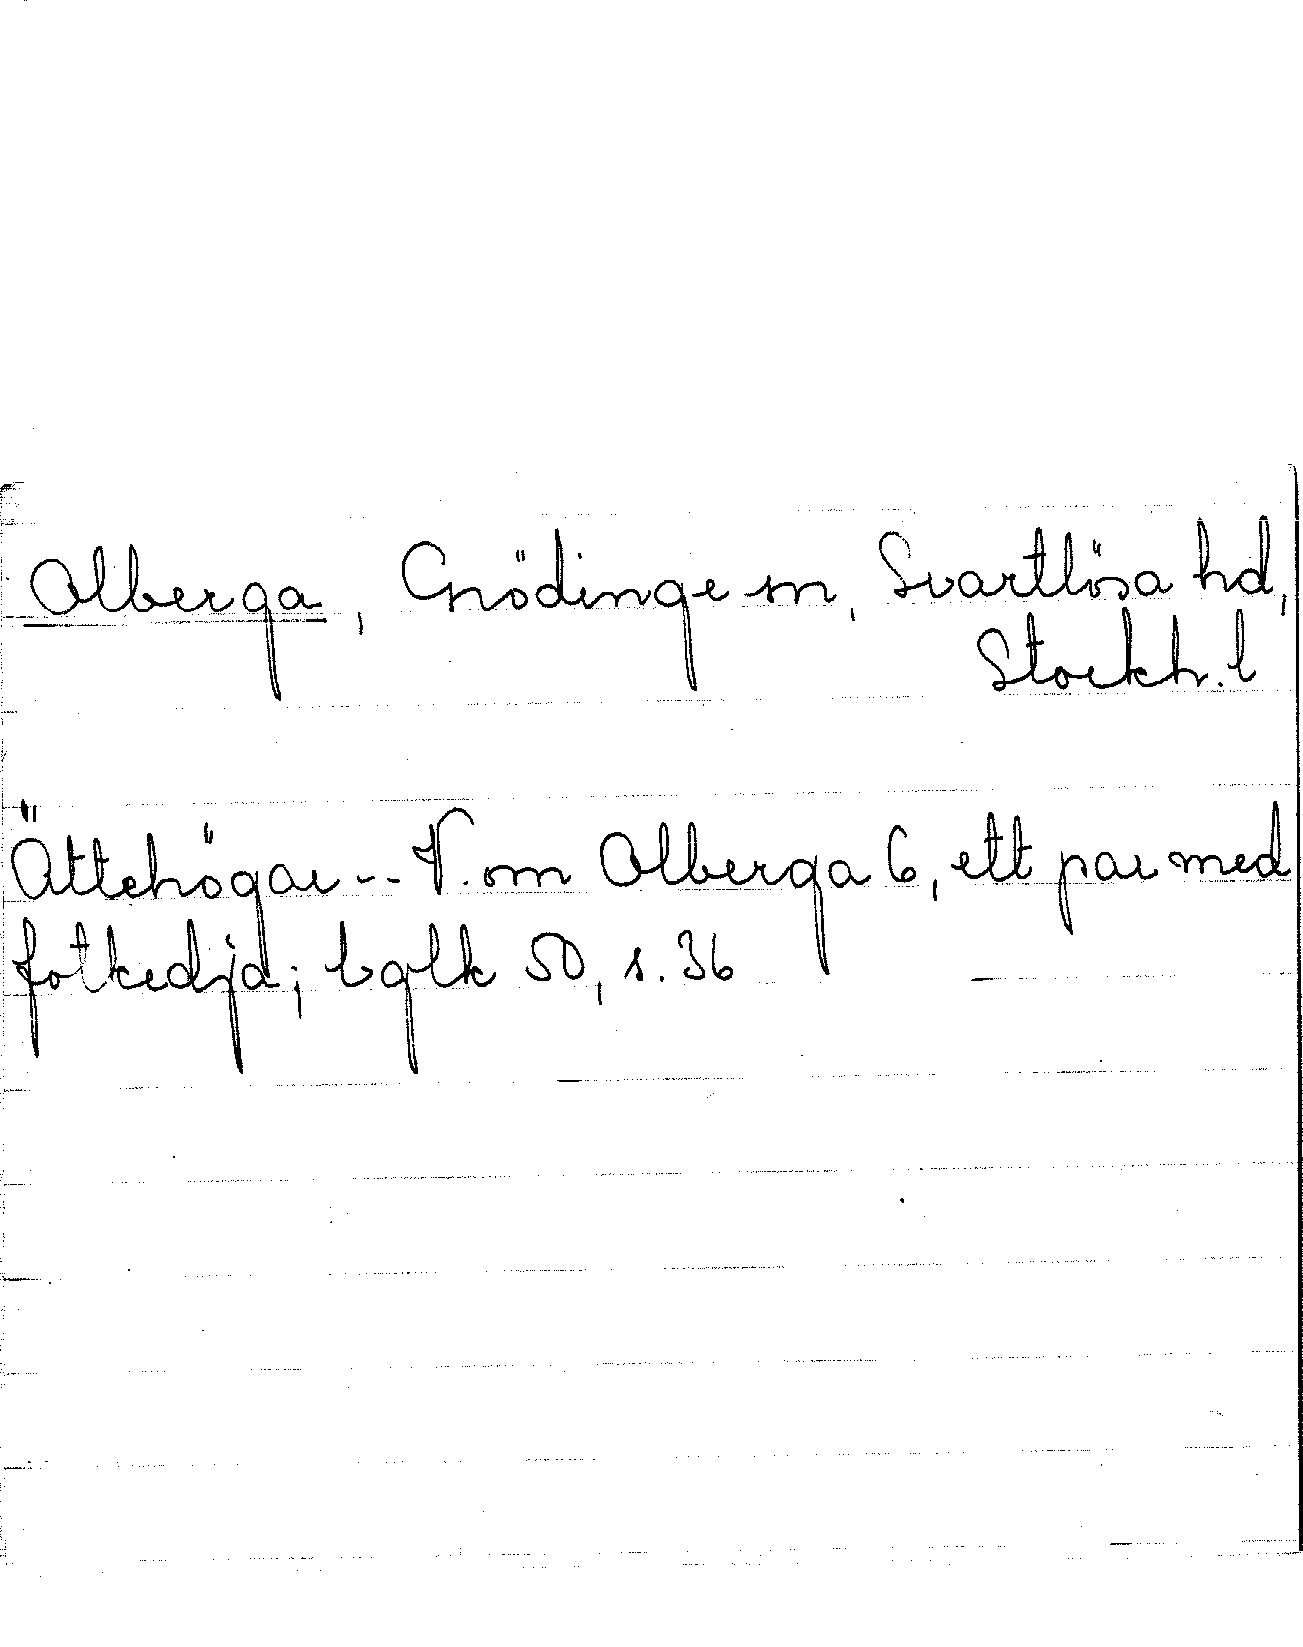 Alberga, Grödinge sn, Svartlösa hd,
Stockh. l
Ättehögar -- V. om Alberga 6, ett par med
fotkedja; bglk 50, s. 36